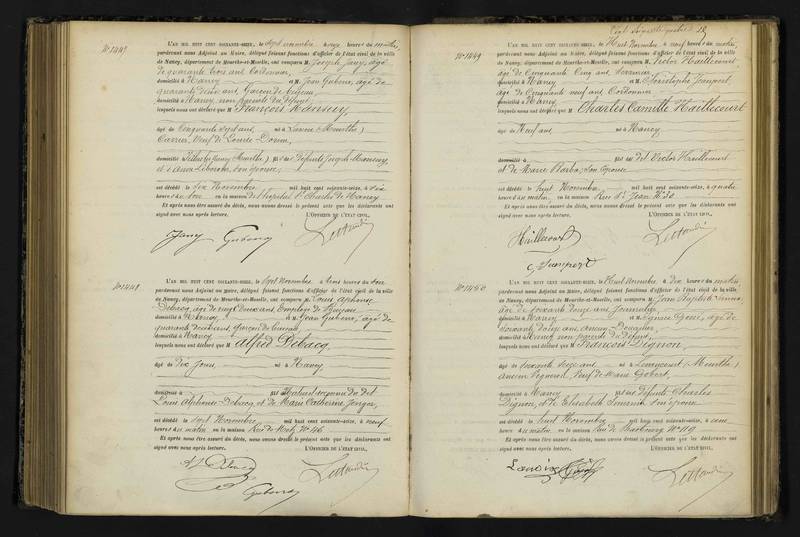 N° 1447
L'AN MIL HUIT CENT SOIXANTE-SEIZE, le sept novembre à onze heures du matin,
pardevant nous Adjoint au Maire, délégué faisant fonctions d'officier de l'état civil de la ville
de Nancy, département de Meurthe-et-Moselle, ont comparu M. Joseph Jany, âgé
de quarante trois ans, Cordonnier,
domicilié à Nancy et M. Jean Gubens, âgé de
quarante deux ans, Garçon de bureau,
domicilié à Nancy, non parents du défunt
lesquels nous ont déclaré que M François
âgé de Cinquante sept ans, né à (Meurthe)
Carrier, Veuf de Louise
domicilié à (Meurthe) fils de défunts Joseph
et d'Anna son épouse,
est décédé le six Novembre mil huit cent soixante-seize, à six
heures du soir, en la maison de l'hôpital St Charles de Nancy.
Et après nous être assuré du décès, nous avons dressé le présent acte que les déclarants ont
signé avec nous après lecture. L'OFFICIER DE L'ÉTAT CIVIL,
Jany Gubens
N° 1448
L'AN MIL HUIT CENT SOIXANTE-SEIZE, le Sept Novembre à trois heures du soir
pardevant nous Adjoint au Maire, délégué faisant fonctions d'officier de l'état civil de la ville
de Nancy, département de Meurthe-et-Moselle, ont comparu M. Louis Alphonse
Debacq, âgé de vingt deux ans, Employé de Bureau
domicilié à Nancy, et M. Jean Gubens, âgé de
quarante deux ans, garçon de bureau,
domicilié à Nancy
lesquels nous ont déclaré que M Alfred Debacq,
âgé de Dix Jours, né à Nancy,
domicilié à fils Naturel reconnu du dit
Louis Alphonse Debacq, et de Marie Catherine
est décédé le sept Novembre mil huit cent soixante-seize, à neuf
heures du matin, en la maison Rue de Metz N° 46
Et après nous être assuré du décès, nous avons dressé le présent acte que les déclarants ont
signé avec nous après lecture. L'OFFICIER DE L'ÉTAT CIVIL,
Gubens
N° 1449
L'AN MIL HUIT CENT SOIXANTE-SEIZE, le Huit Novembre à neuf heures du matin,
pardevant nous Adjoint au Maire, délégué faisant fonctions d'officier de l'état civil de la ville
de Nancy, département de Meurthe-et-Moselle, ont comparu M. Victor Haillecourt
âgé de Cinquante Cinq ans,
domicilié à Nancy et M. Christophe
âgé de Cinquante neuf ans, Cordonnier
domicilié à Nancy
lesquels nous ont déclaré que M Charles Camille Haillecourt
âgé de Neuf ans, né à Nancy
domicilié à fils du dit Victor Haillecourt
et de Marie Barbe, son épouse
est décédé le huit Novembre mil huit cent soixante-seize, à quatre
heures du matin, en la maison Rue St Jean N° 30
Et après nous être assuré du décès, nous avons dressé le présent acte que les déclarants ont
signé avec nous après lecture. L'OFFICIER DE L'ÉTAT CIVIL,
Haillecourt
N° 1450
L'AN MIL HUIT CENT SOIXANTE-SEIZE, le Huit Novembre à Dix heures du matin
pardevant nous Adjoint au Maire, délégué faisant fonctions d'officier de l'état civil de la ville
de Nancy, département de Meurthe-et-Moselle, ont comparu M. Jean Baptiste
âgé de soixante douze ans, Journalier
domicilié à Nancy et M. Pierre âgé de
soixante douze ans, Ancien Douanier,
domicilié à Nancy, non parents du défunt,
lesquels nous ont déclaré que M François Dignon,
âgé de soixante seize ans né à (Meurthe)
Ancien Vigneron, Veuf de Marie Gobert
domicilié à Nancy fils de défunts Charles
Dignon, et d'Elisabeth son épouse
est décédé le huit Novembre mil huit cent soixante-seize, à une
heure du matin, en la maison Rue de Strasbourg N° 119
Et après nous être assuré du décès, nous avons dressé le présent acte que les déclarants ont
signé avec nous après lecture. L'OFFICIER DE L'ÉTAT CIVIL,